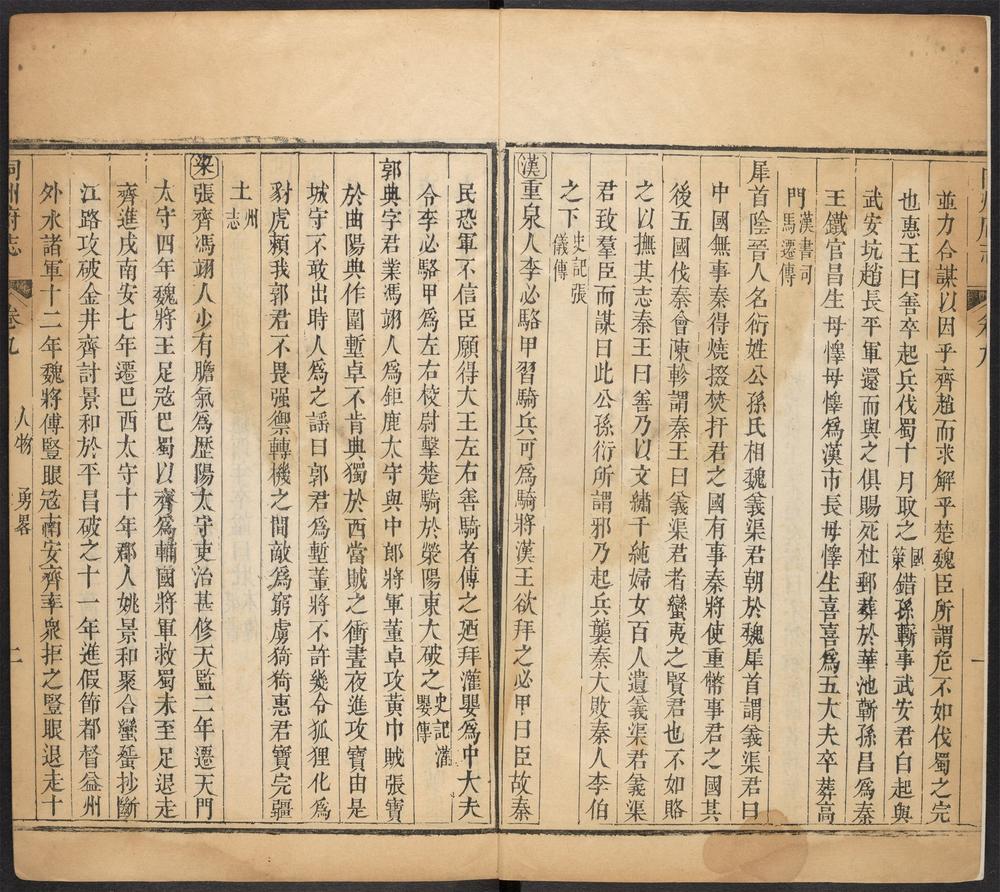 並力合謀以因乎齊趙而求解乎楚魏臣所謂危不如伐蜀之完
也惠王曰善卒起兵伐蜀十月取之國策錯孫蘄事武安君白起與
武安坑趙長平軍還而與之俱賜死杜郵葬於華池蘄孫昌爲秦
王鐵官昌生毋懌毋懌爲漢市長毋懌生喜喜爲五大夫卒葬高
門漢書司馬遷傳
犀首陰晉人名衍姓公孫氏相魏義渠君朝於魏犀首謂義渠君曰
中國無事秦得燒掇焚扞君之國有事秦將使重幣事君之國其
後五國伐秦會陳軫謂秦王曰義渠君者蠻夷之賢君也不如賂
之以撫其志秦王曰善乃以文繡千純婦女百人遺義渠君義渠
君致羣臣而謀曰此公孫衍所謂邪乃起兵襲秦大敗秦人李伯
之下史記張儀傳
漢重泉人李必駱甲習騎兵可爲騎將漢王欲拜之必甲曰臣故秦
民恐軍不信臣願得大王左右善騎者傅之廼拜灌嬰爲中大夫
令李必駱甲爲左右校尉擊楚騎於滎陽東大破之史記灌嬰傳
郭典字君業馮翊人爲鉅鹿太守與中郎將軍董卓攻黃巾賊張寶
於曲陽典作圍塹卓不肯典獨於西當賊之衝晝夜進攻寶由是
城守不敢出時人爲之謡曰郭君爲塹董將不許幾令狐狸化爲
豺虎賴我郭君不畏强禦轉機之間敵爲窮虜猗猗惠君寶完疆
土州志
梁張齊馮翊人少有膽氣爲歷陽太守吏治甚修天監二年遷天門
太守四年魏將王足寇巴蜀以齊爲輔國將軍救蜀未至足退走
齊進戍南安七年遷巴西太守十年郡人姚景和聚合蠻蜑抄斷
江路攻破金井齊討景和於平昌破之十一年進假節都督益州
外水諸軍十二年魏將傅豎眼寇南安齊率衆拒之豎眼退走十
同州府志 卷九 人物 勇畧 二